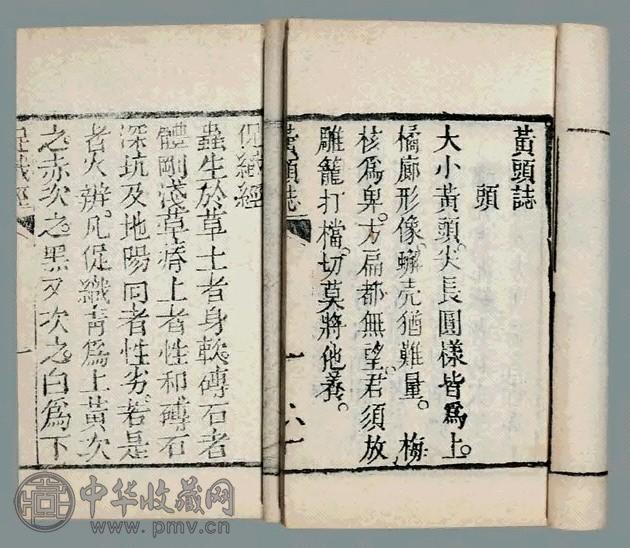 黃頭誌
頭
大小黃頭。尖長圓樣皆爲上。
橘廊形像。蠏壳猶難量。梅
核爲卑。方扁都無望。君須放
雕籠打檔。切莫將他養。
黃頭誌
促織經
蟲生於草土者身軟。磚石者
體剛淺草瘠土者性和磚石
深坑及地陽向者性劣。若是
者火辨。凡促織青爲上黃次
之赤次之黑又次之白爲下
促織經 一
中华收藏网
www.pmv.cn